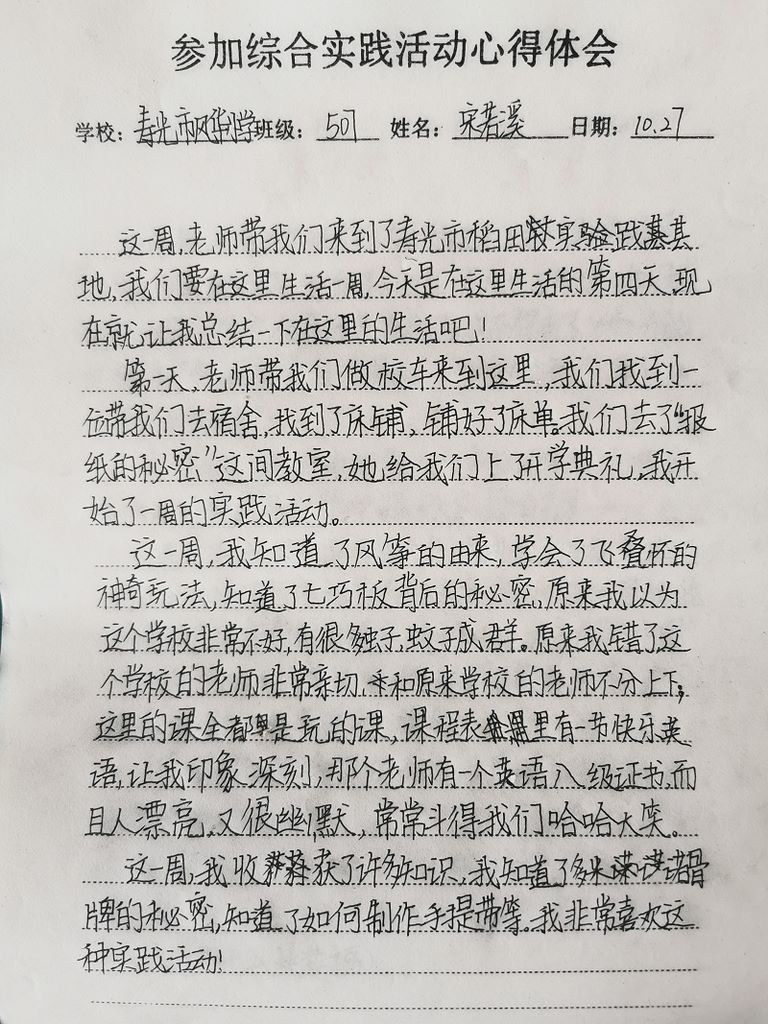 参加综合实践活动心得体会
学校：寿光市凤华学 班级：507 姓名：宋若溪 日期：10.27
这一周，老师带我们来到了寿光市稻田实验践基
地，我们要在这里生活一周，今天是在这里生活的第四天，现
在就让我总结一下在这里的生活吧！
第一天，老师带我们做校车来到这里，我们找到一
位带我们去宿舍，找到了床铺，铺好了床单。我们去了“报
纸的秘密”这间教室，她给我们上了开学典礼，我开
始了一周的实践活动。
这一周，我知道了风筝的由来，学会了飞叠杯的
神奇玩法，知道了七巧板背后的秘密，原来我以为
这个学校非常不好，有很多虫子，蚊子成群。原来我错了这
个学校的老师非常亲切，和原来学校的老师不分上下；
这里的课全都是玩的课，课程表里有一节快乐英
语，让我印象深刻，那个老师有一个英语八级证书，而
且人漂亮，又很幽默，常常斗得我们哈哈大笑。
这一周，我收获了许多知识，我知道了多米诺骨
牌的秘密，知道了如何制作手提带等。我非常喜欢这
种实践活动！